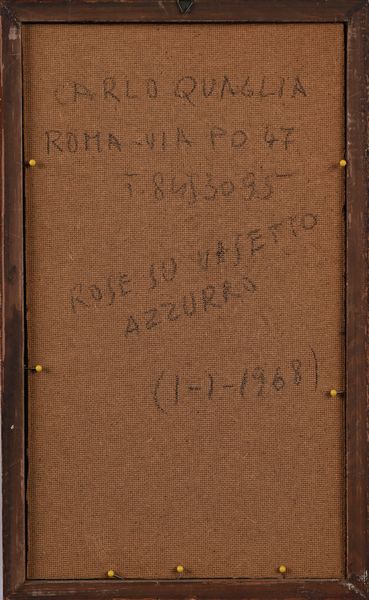 CARLO QUAGLIA
ROMA-VIA PO 47
T. 8453095
ROSE SU VASETTO
AZZURRO
(1-1-1968)